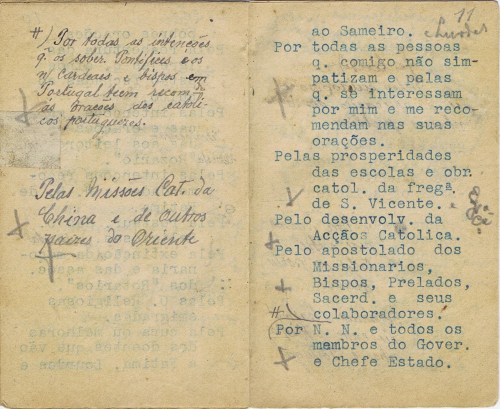 #) Por todas as intenções
q̃ os sober. Pontífices e os
n/ Cardeais e bispos em
Portugal teem recomd.
às orações dos catoli-
cos portugueses.
Pelas Missões Cat. da
China e de outros
paizes do Oriente
11
ao Sameiro.
Por todas as pessoas
q. comigo não sim-
patizam e pelas
q. se interessam
por mim e me reco-
mendam nas suas
orações.
Pelas prosperidades
das escolas e obr.
catol. da fregª.
de S. Vicente.
Pelo desenvolv. da
Acção Catolica.
Pelo apostolado dos
Missionarios,
Bispos, Prelados,
Sacerd. e seus
# colaboradores.
(Por N. N. e todos os
membros do Gover.
e Chefe Estado.